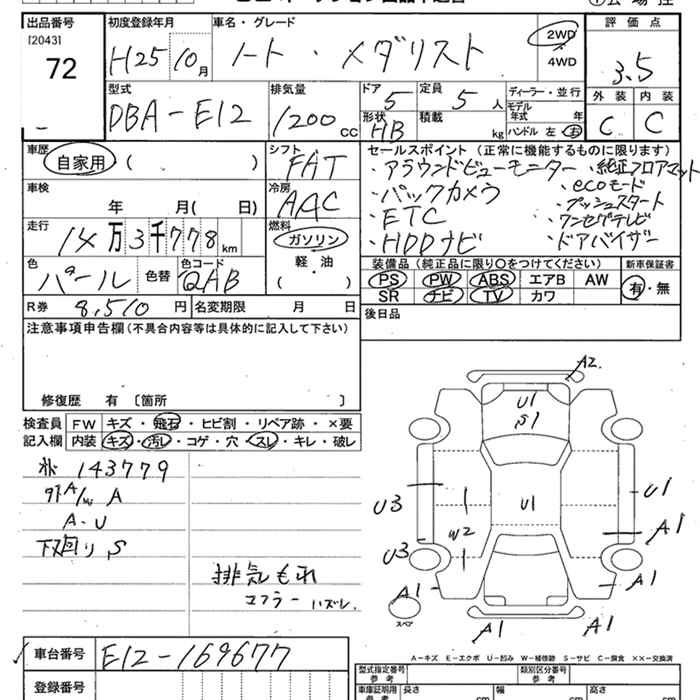 出品番号
[2043]
72
初度登録年月
H25 10月
車名・グレード
ノート・メダリスト
2WD
4WD
評価点
3.5
外装 内装
C C
型式
DBA-E12
排気量
1200cc
ドア 5
定員 5人
形状 HB
積載 kg
ディーラー・並行
モデル年式 年
ハンドル 左 右
車歴
自家用 ( )
シフト
FAT
車検
年 月( 日)
冷房
AAC
走行
14万3千778km
燃料
ガソリン
軽・油
( )
色
パール
色替
色コード
QAB
R券 8,510円
名変期限 月 日
セールスポイント(正常に機能するものに限ります)
・アラウンドビューモニター ・純正フロアマット
・バックカメラ ・ecoモード
・プッシュスタート
・ETC ・ワンセグテレビ
・HDDナビ ・ドアバイザー
装備品(純正品に限り○をつけてください)
新車保証書
PS PW ABS エアB AW
SR ナビ TV カワ
有・無
後日品
注意事項申告欄(不具合内容等は具体的に記入して下さい)
修復歴 有〔箇所 〕
検査員記入欄
FW キズ・飛石・ヒビ割・リペア跡・×要
内装 キズ・汚レ・コゲ・穴・スレ・キレ・破レ
143779
A
A・U
下回り S
排気もれ
マフラー ハズレ
A2
U1
S1
U3
U1
U1
W2
A1
U3
A1
A1
スペア
A1
A1
A-キズ E-エクボ U-凹み W-補修跡 S-サビ C-腐食 ××-交換済
車台番号 E12-169677
登録番号
型式指定番号
参考
類別区分番号
参考
車庫証明用
参考
長さ cm
幅 cm